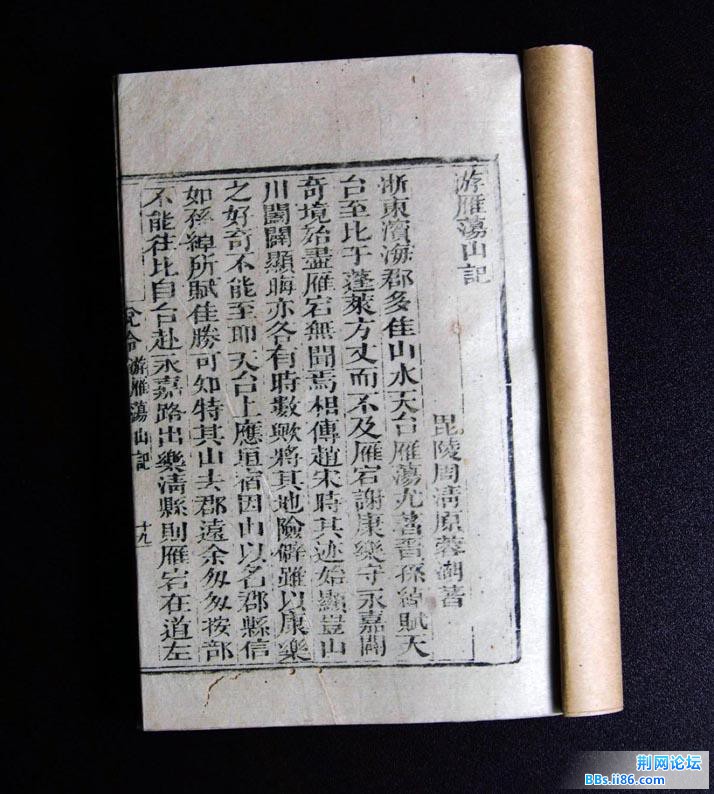 游雁蕩山記
毘陵周清原蓉湖著
浙東濱海郡多佳山水天台雁蕩尤著晉孫綽賦天
台至比于蓬萊方丈而不及雁宕謝康樂守永嘉闢
奇境始盡雁宕無聞焉相傳趙宋時其迹始顯豈山
川闔闢顯晦亦各有時數歟將其地險僻雖以康樂
之好奇不能至耶天台上應垣宿因山以名郡縣信
如孫綽所賦佳勝可知特其山去郡遠余匆匆按部
不能往比自台赴永嘉路出樂清縣則雁宕在道左
游雁蕩山記
十九
荆网论坛
BBs.ii86.com